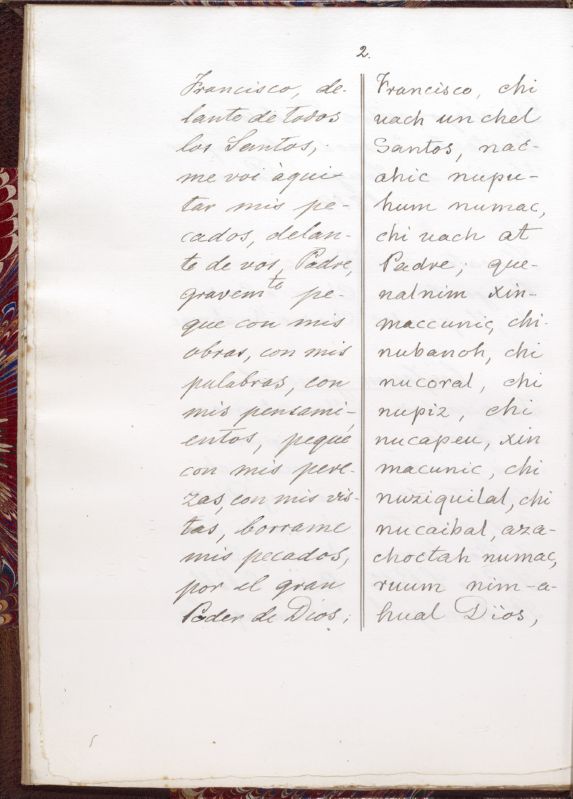 2.
Francisco, de-
lante de todos
los Santos,
me voi à qui-
tar mis pe-
cados, delan-
te de vos, Padre,
gravem^te pe-
que con mis
obras, con mis
palabras, con
mis pensami-
entos, pequé
con mis pere-
zas, con mis vis-
tas, borrame
mis pecados,
por el gran
Poder de Dios;
Francisco, chi
vach un chel
Santos, nac-
ahic nupu-
hum numac,
chi vach at
Padre; que-
nalnim xin-
maccunic, chi-
nubanoh, chi
nucoral, chi
nupiz, chi
nucapeu, xin
macunic, chi
nuziquilal, chi
nucaibal, aza-
choctah numac,
ruum nim-a-
hual Dios,